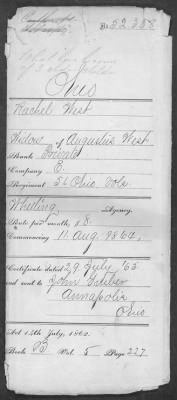 No 52,388
Ohio
Rachel West
Widow of Augustus West
Rank Private
Company E.
Regiment 56 Ohio Vols.
Wheeling Agency.
Rate per month, $8.
Commencing 11 Aug. 1864,
Certificate dated 29 July '65
and sent to John
Annapolis
Ohio
Act 14th July, 1862.
Book B Vol. 5 Page 227